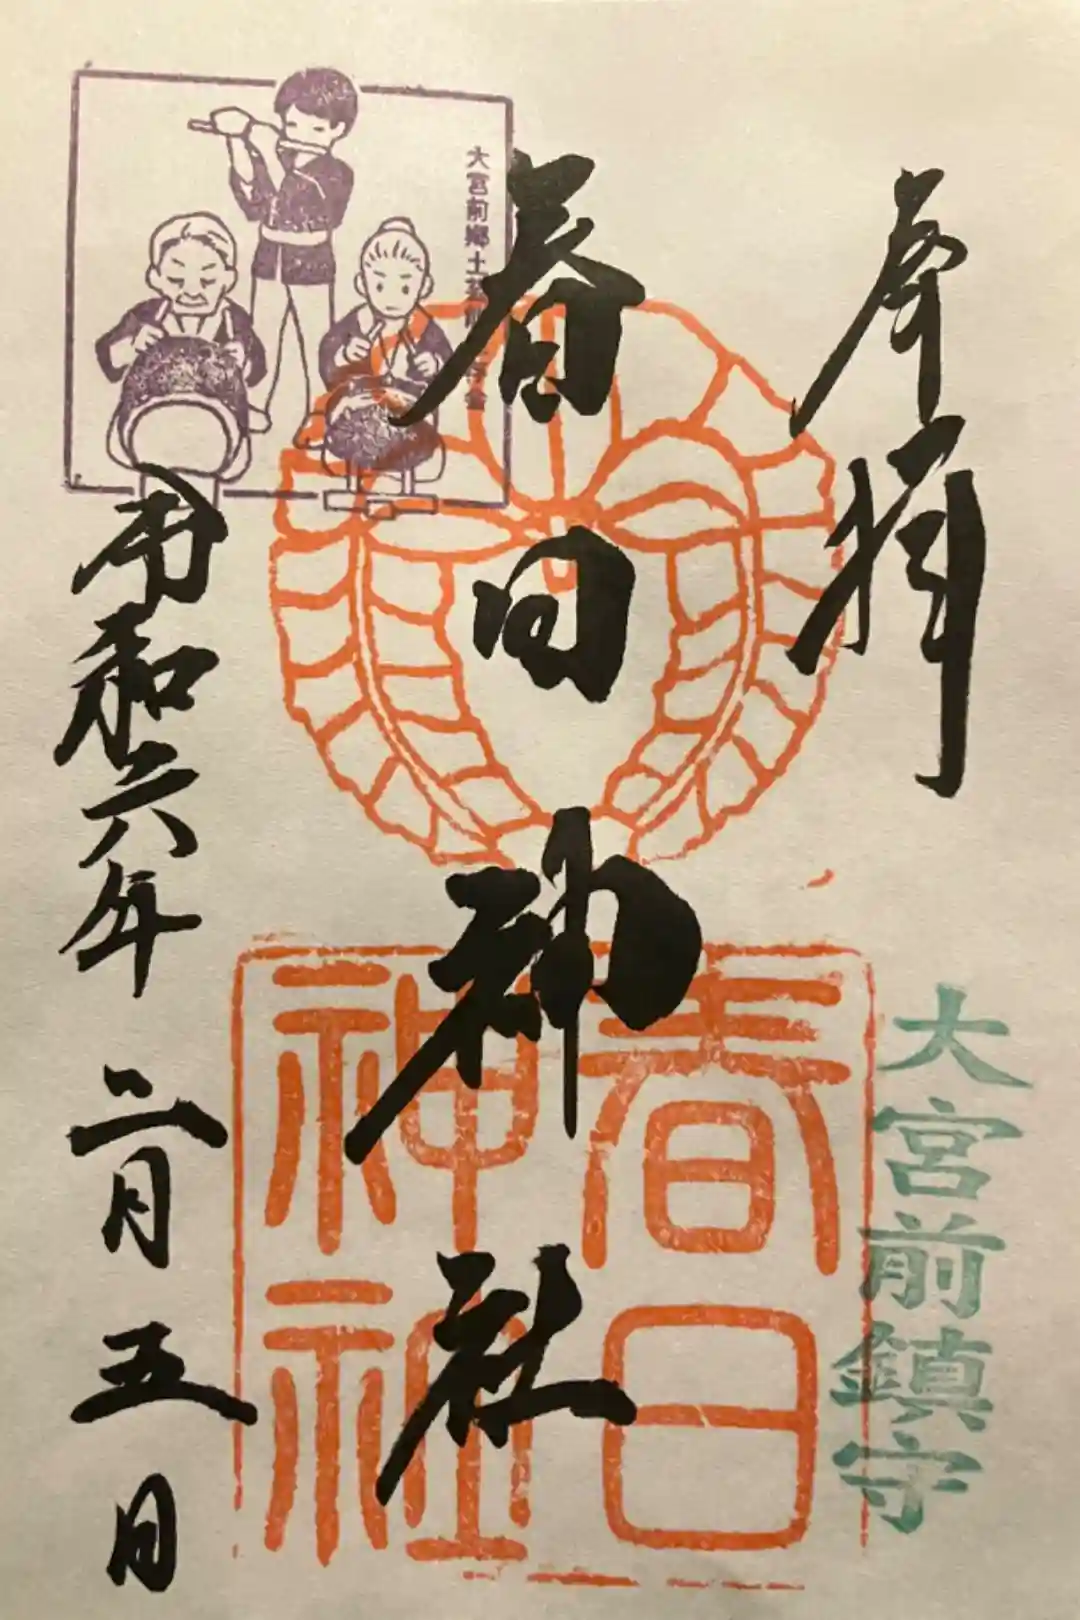 奉拝
大宮前鎮守
春日神社
春日
神社
大宮前郷土芸能保存会
令和六年二月五日